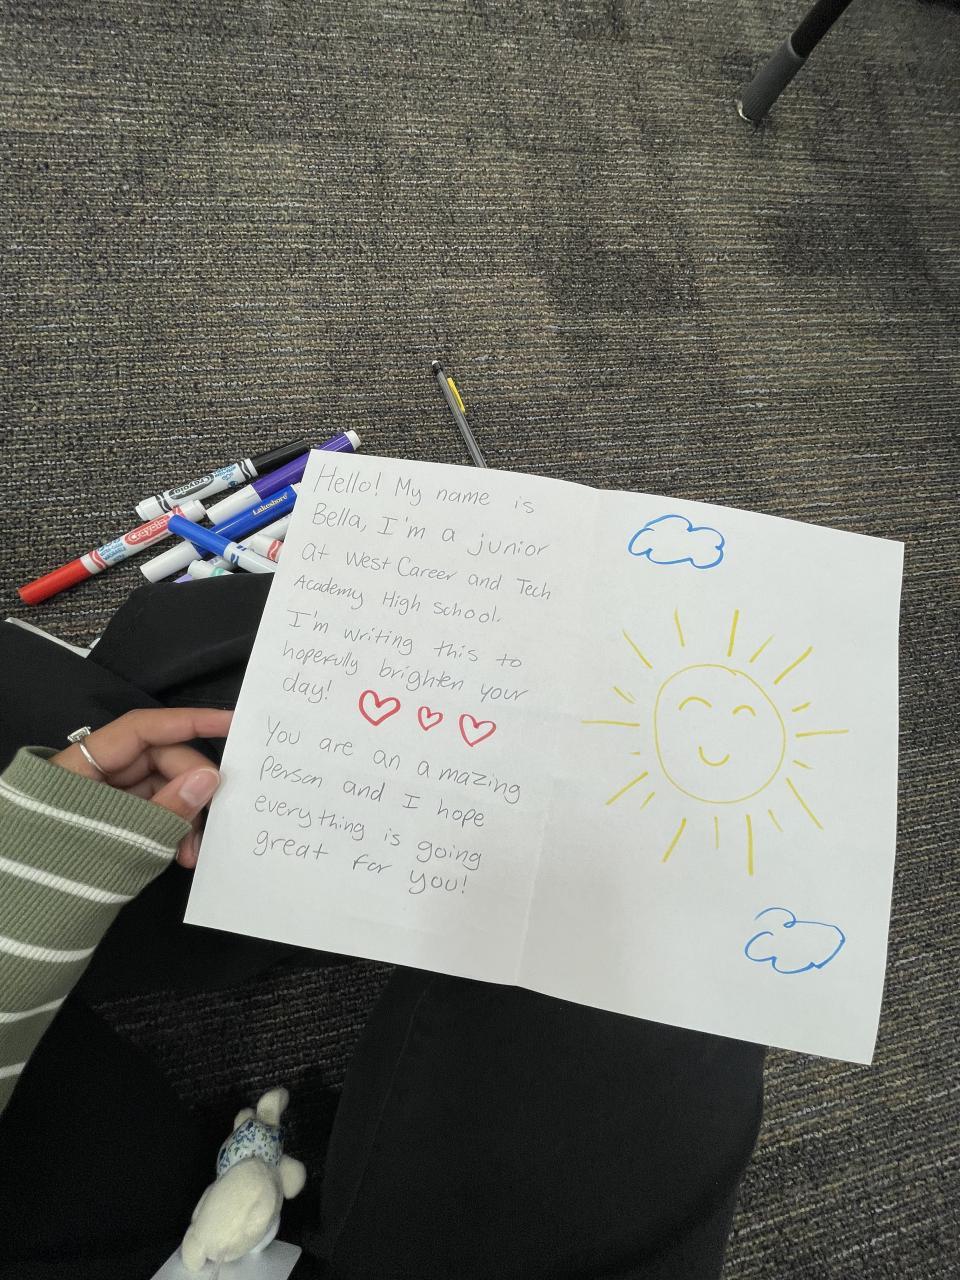 Hello! My name is
Bella, I'm a junior
at West Career and Tech
Academy High school.
I'm writing this to
hopefully brighten your
day!
You are an amazing
person and I hope
everything is going
great for you!
Crayola
Crayola
Lakeshore